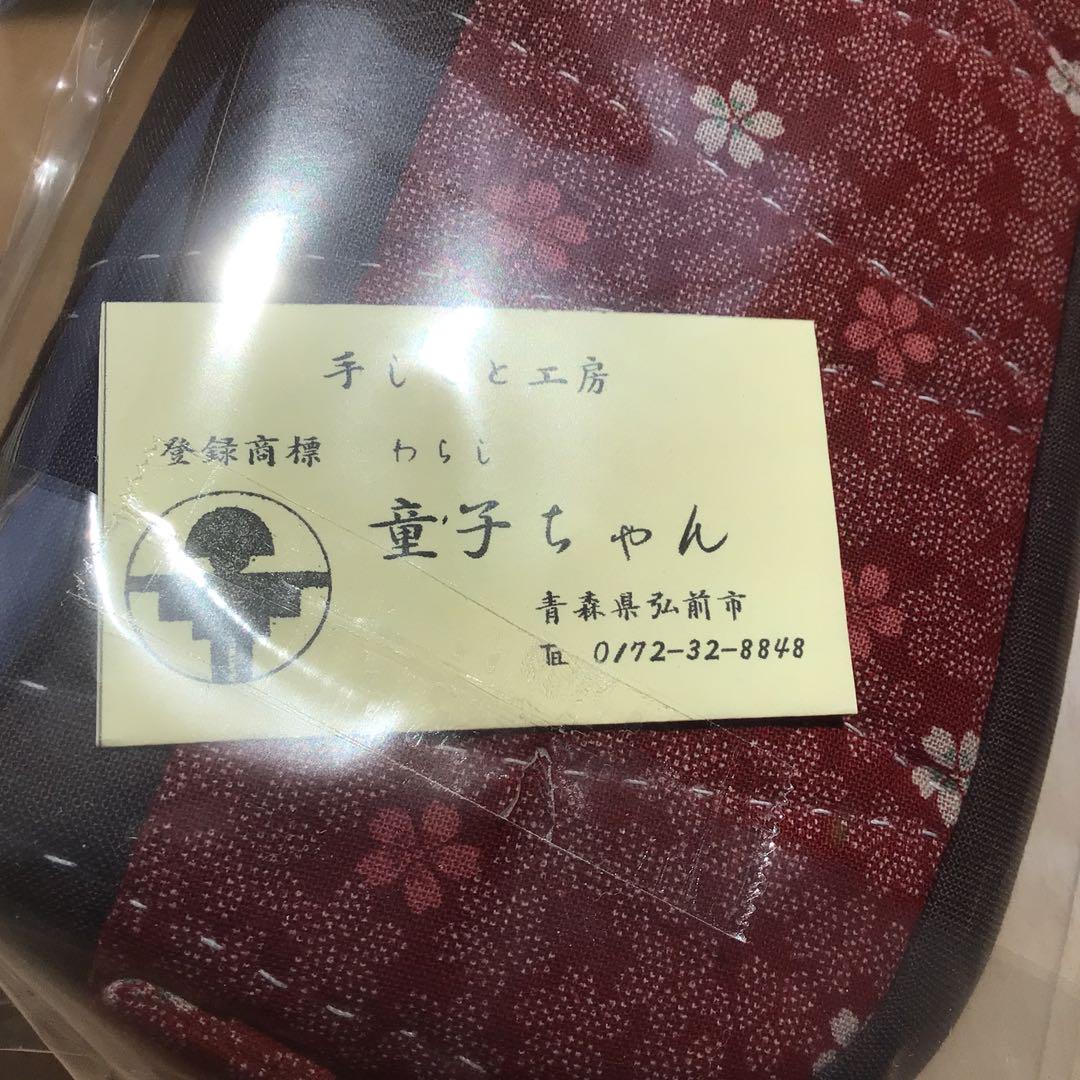 手しごと工房
登録商標 わらし
童子ちゃん
青森県弘前市
TEL 0172-32-8848